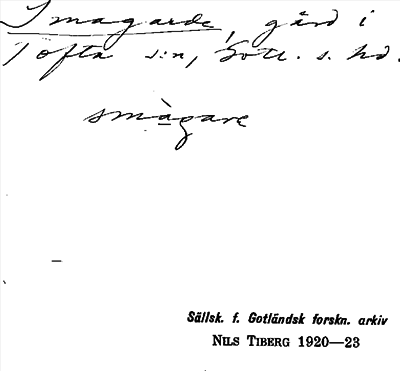 Smågarde, gård i
Tofta s:n, Gotl. s. hd.
smågare
Sällsk. f. Gotländsk forskn. arkiv
NILS TIBERG 1920—23